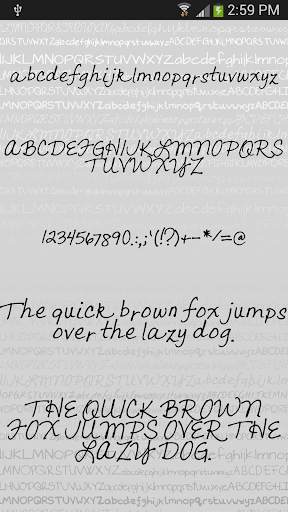 2:59 PM
abcdefghijklmnopqrstuvwxyz
ABCDEFGHIJKLMNOPQRS
TUVWXYZ
1234567890.:,;'(!?)+-*/=@
The quick brown fox jumps
over the lazy dog.
THE QUICK BROWN
FOX JUMPS OVER THE
LAZY DOG.